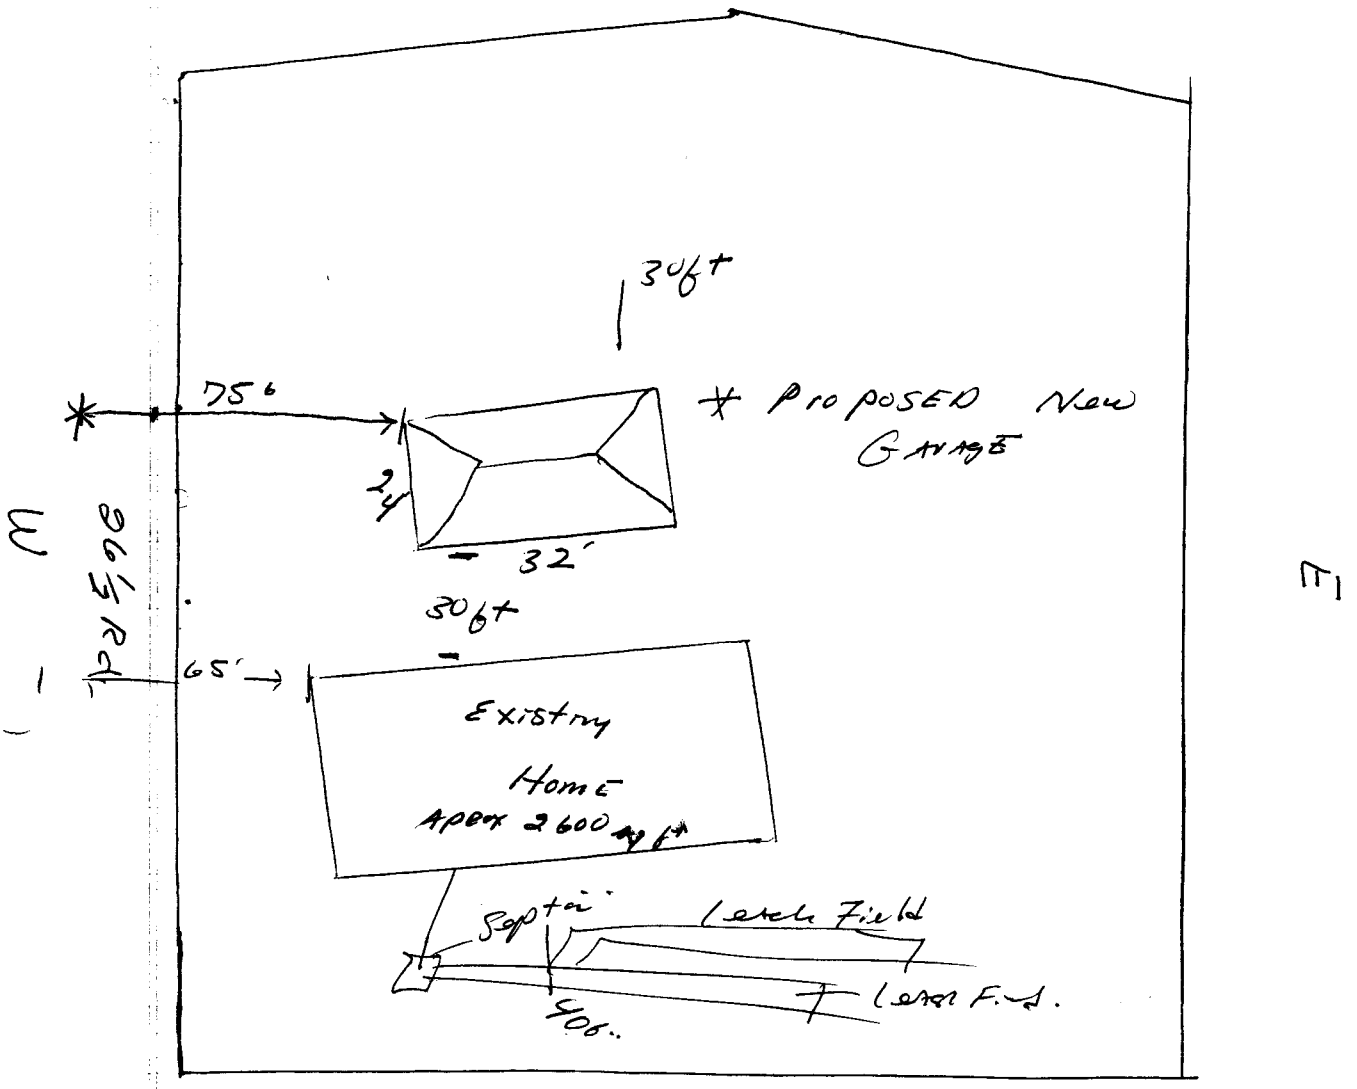 30ft
75'
* PROPOSED New
GARAGE
24
32'
30ft
W
26.5 Rd
E
65'
Existing
Home
Apox 2600 sq ft
Septic
Leach Field
Leach Field.